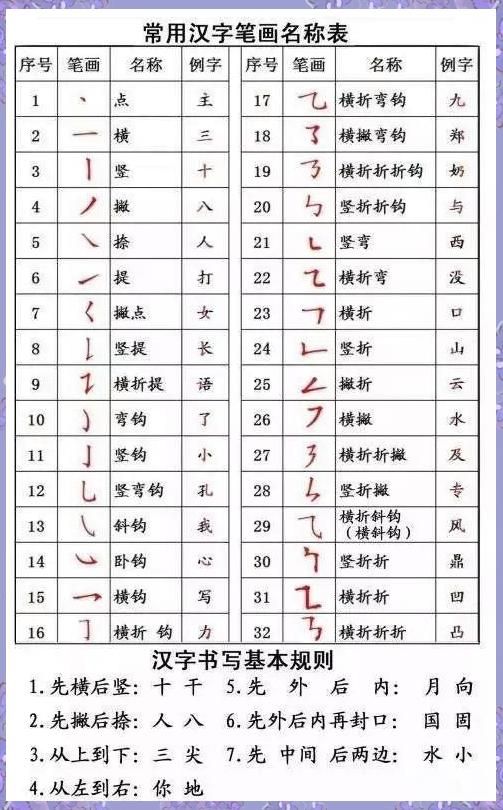 常用汉字笔画名称表
序号 笔画 名称 例字 序号 笔画 名称 例字
1 丶 点 主 17 乙 横折弯钩 九
2 一 横 三 18 横撇弯钩 郑
3 丨 竖 十 19 横折折折钩 奶
4 丿 撇 八 20 竖折折钩 与
5 ㇏ 捺 人 21 竖弯 西
6 ㇀ 提 打 22 横折弯 没
7 ㇛ 撇点 女 23 横折 口
8 竖提 长 24 竖折 山
9 横折提 语 25 撇折 云
10 弯钩 了 26 横撇 水
11 亅 竖钩 小 27 横折折撇 及
12 乚 竖弯钩 孔 28 竖折撇 专
13 ㇂ 斜钩 我 29 横折斜钩（横斜钩） 风
14 ㇃ 卧钩 心 30 竖折折 鼎
15 乛 横钩 写 31 横折折 凹
16 横折 钩 力 32 横折折折 凸
汉字书写基本规则
1.先横后竖：十 干 5.先 外 后 内：月 向
2.先撇后捺：人 八 6.先外后内再封口：国 固
3.从上到下：三 尖 7.先 中间 后两边：水 小
4.从左到右：你 地